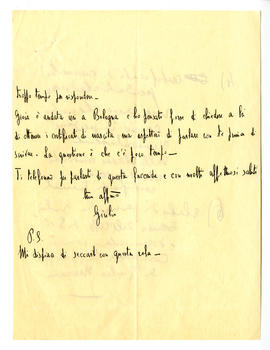 troppo tempo per rispondere -
Gioia è andata via a Bologna e ho pensato forse di chiedere a lei
di ottenere i certificati di nascita ma aspettavi di parlare con te prima di
scrivere. La questione è che c'è poco tempo -
Ti telefono per parlarti di questa faccenda e con molti affettuosi saluti
tuo aff.mo
Giulio
P.S.
Mi dispiace di seccarti con questa sola -